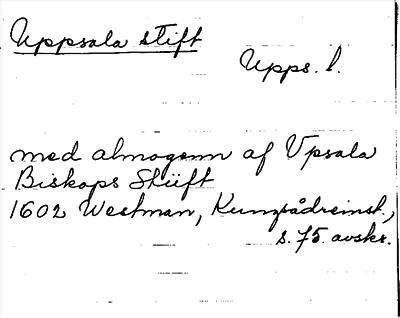 Uppsala stift
Upps. l.
med almogenn af Vpsala
Biskops Stift
1602 Westman, Kungsådreinst.,
s. 75. avskr.